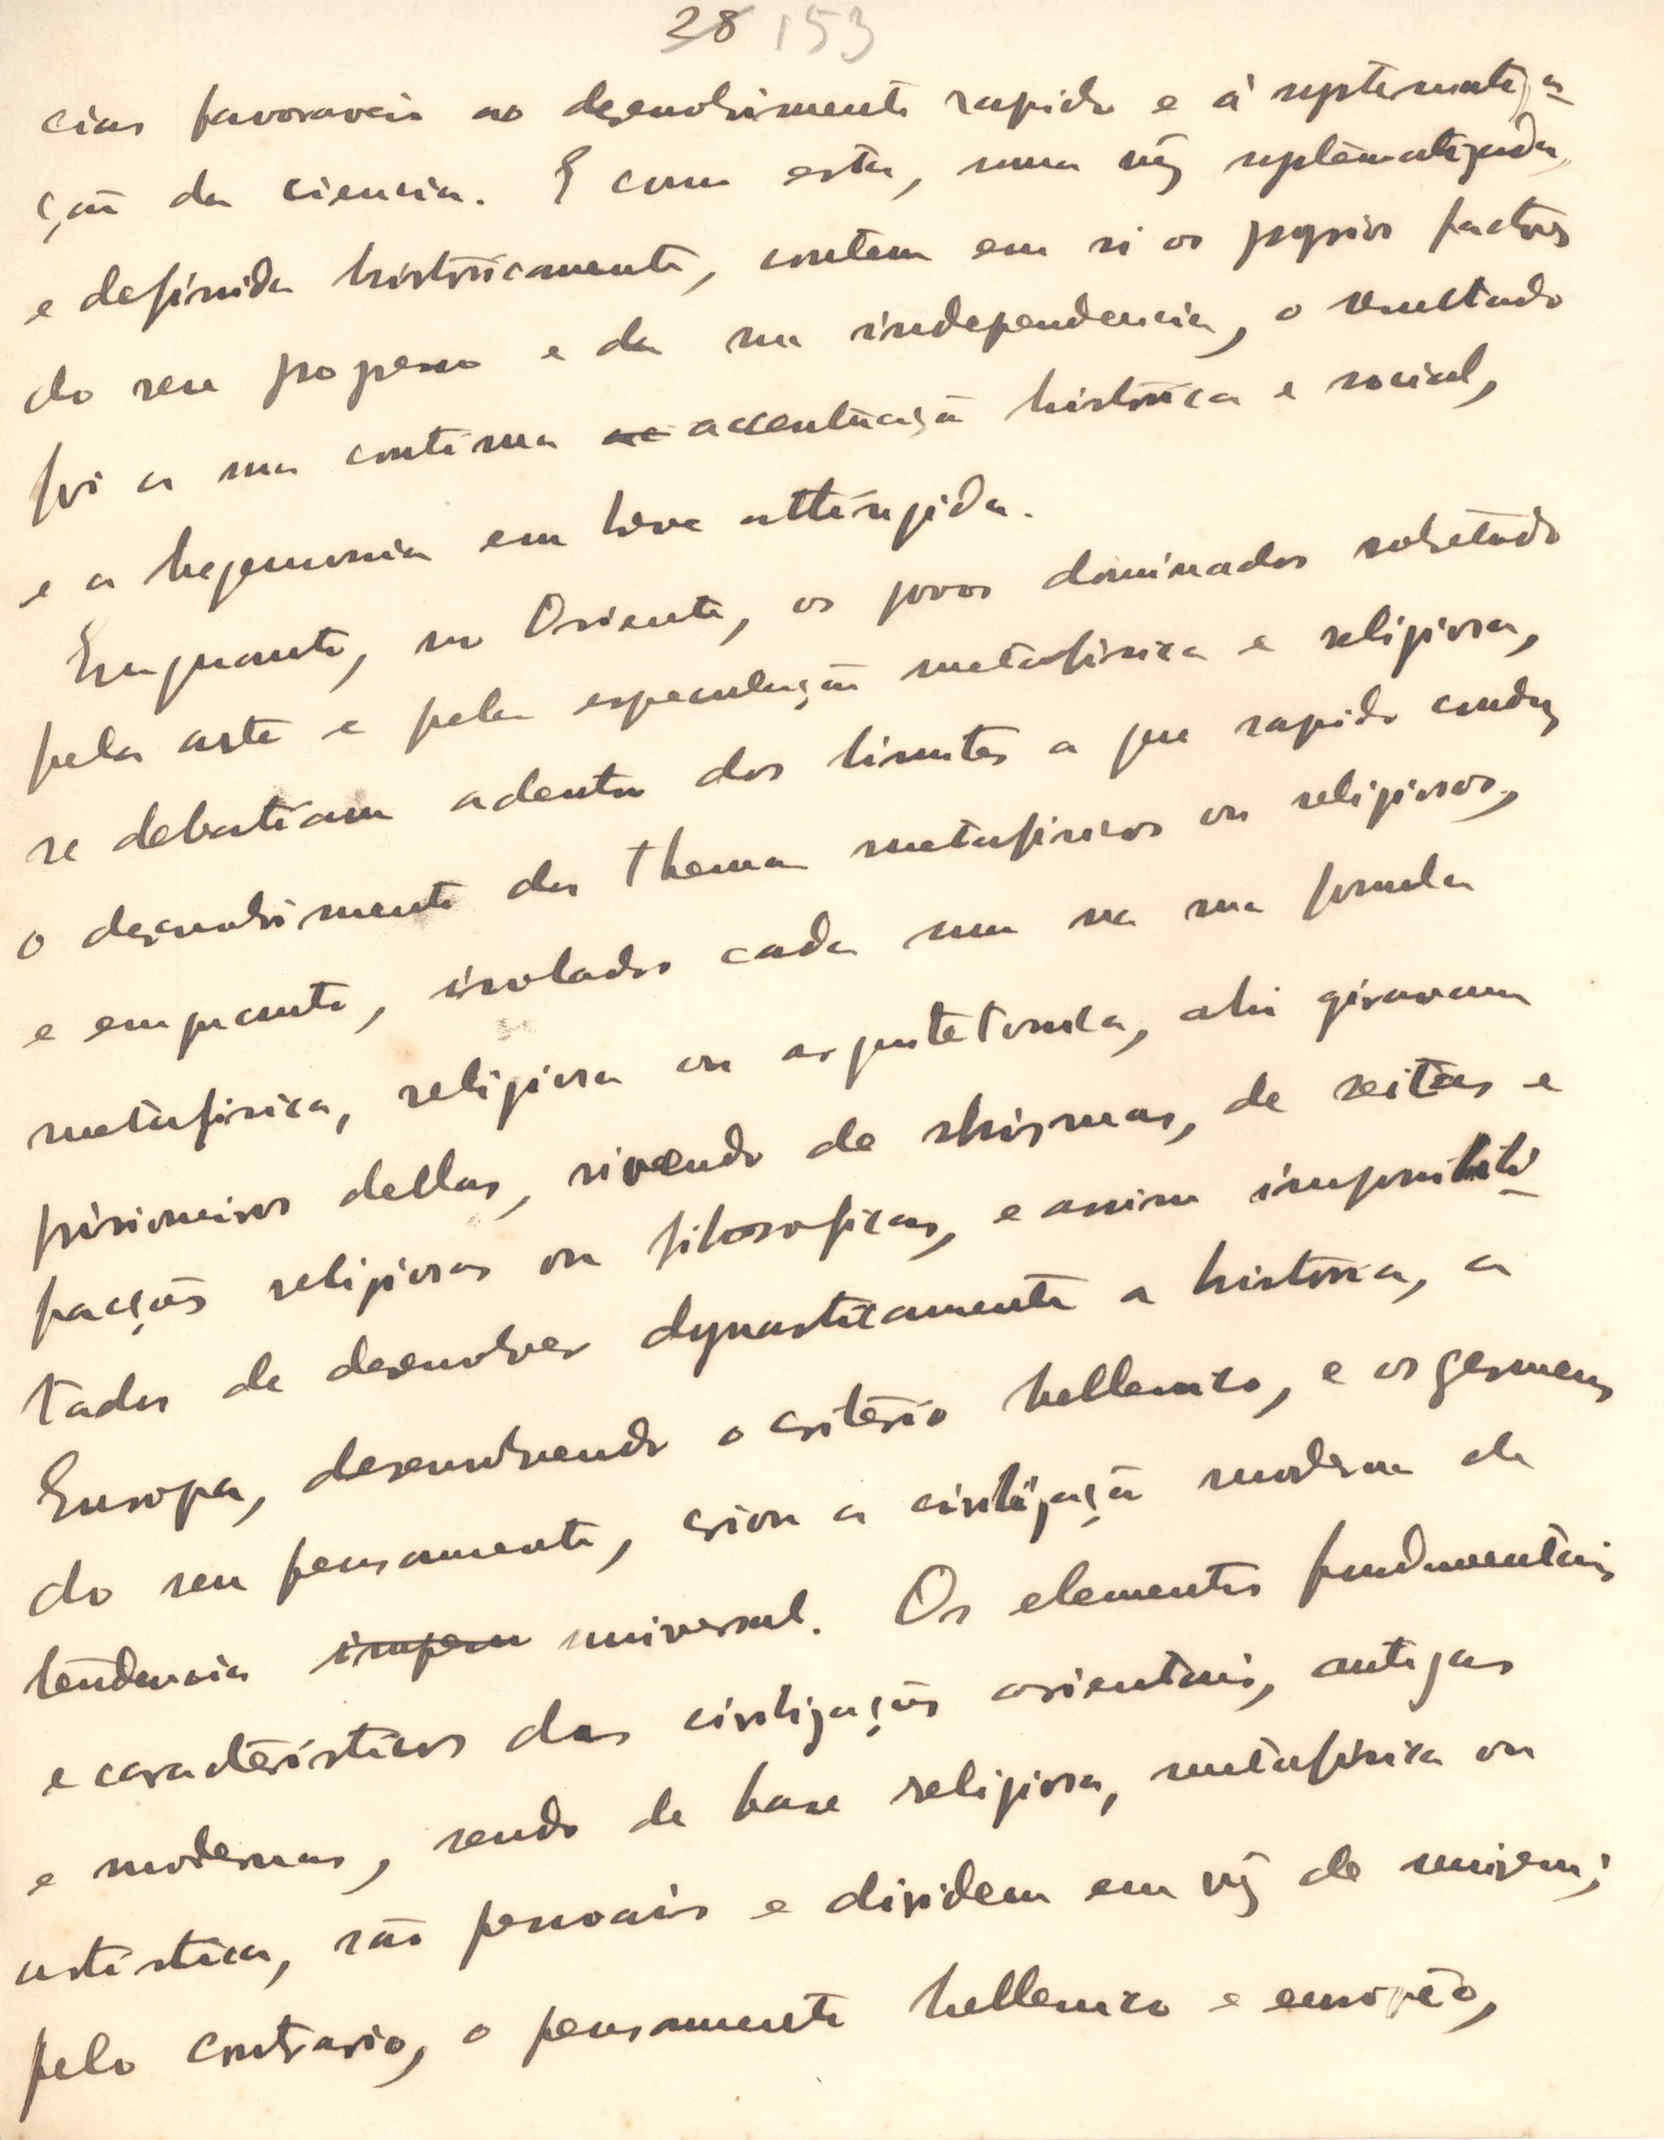 28 153
cias favoraveis ao desenvolvimento rapido e á systematiza-
ção da ciencia. E como esta, uma vez systematizada,
e definida historicamente, contem em si os proprios factores
do seu progresso e da sua independencia, o resultado
foi a sua continua ac accentuação historica e social,
e a hegemonia em breve attingida.
Emquanto, no Oriente, os povos dominados sobretudo
pela arte e pela especulação metafisica e religiosa,
se debatiam adentro dos limites a que rapido conduz
o desenvolvimento dos themas metafisicos ou religiosos,
e emquanto, isolados cada um na sua formula
metafisica, religiosa ou arquitetonica, ahi giravam
prisioneiros dellas, vivendo de shismas, de seitas e
facções religiosas ou filosoficas, e assim impossibili-
tados de desenvolver dynasticamente a historia, a
Europa, desenvolvendo o criterio hellenico, e os germens
do seu pensamento, criou a civilização moderna de
tendencia impess universal. Os elementos fundamentais
e caracteristicos das civilizações orientais, antigas
e modernas, sendo de base religiosa, metafisica ou
artistica, são pessoais e dividem em vez de unirem;
pelo contrario, o pensamento hellenico e europêo,